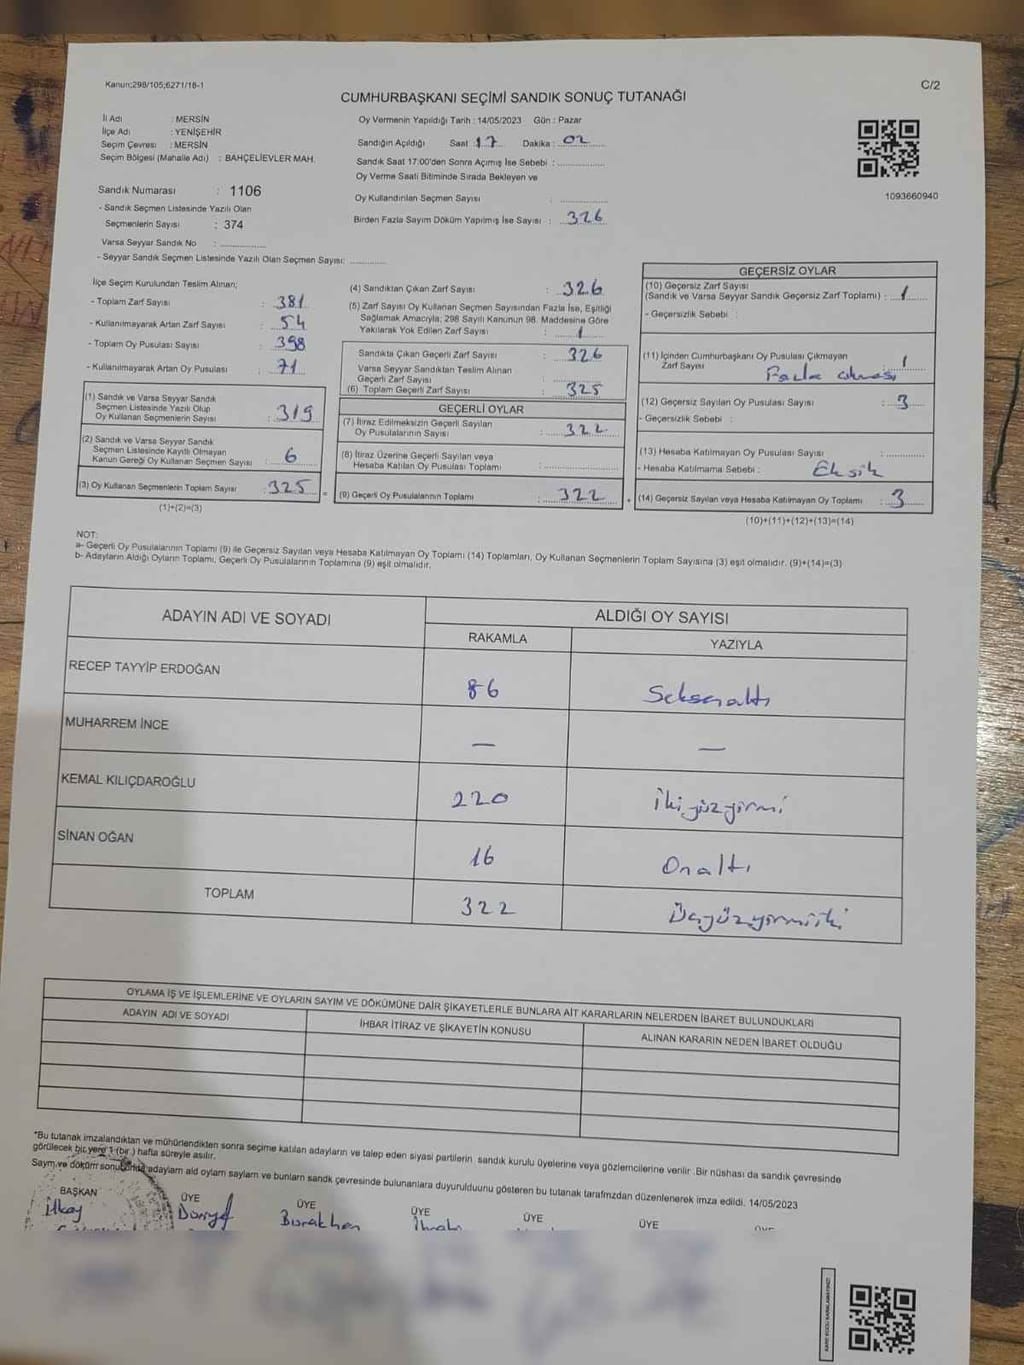 Kanun;298/105;6271/16-1
C/2
CUMHURBAŞKANI SEÇİMİ SANDIK SONUÇ TUTANAĞI
İl Adı : MERSİN
İlçe Adı : YENİŞEHİR
Seçim Çevresi : MERSİN
Seçim Bölgesi (Mahalle Adı) : BAHÇELİEVLER MAH.
Sandık Numarası : 1106
- Sandık Seçmen Listesinde Yazılı Olan
Seçmenlerin Sayısı : 374
Varsa Seyyar Sandık No : ..............
- Seyyar Sandık Seçmen Listesinde Yazılı Olan Seçmen Sayısı: ............
Oy Vermenin Yapıldığı Tarih : 14/05/2023 Gün : Pazar
Sandığın Açıldığı Saat : 17 Dakika : 02
Sandık Saat 17:00'den Sonra Açımış İse Sebebi : ..............
Oy Verme Saati Bitiminde Sırada Bekleyen ve
Oy Kullandırılan Seçmen Sayısı : ..............
Birden Fazla Sayım Döküm Yapılmış İse Sayısı : 326
1093660940
İlçe Seçim Kurulundan Teslim Alınan;
- Toplam Zarf Sayısı : 381
- Kullanılmayarak Artan Zarf Sayısı : 54
- Toplam Oy Pusulası Sayısı : 398
- Kullanılmayarak Artan Oy Pusulası : 71
(1) Sandık ve Varsa Seyyar Sandık
Seçmen Listesinde Yazılı Olup
Oy Kullanan Seçmenlerin Sayısı : 319
(2) Sandık ve Varsa Seyyar Sandık
Seçmen Listesinde Kayıtlı Olmayan
Kanun Gereği Oy Kullanan Seçmen Sayısı : 6
(3) Oy Kullanan Seçmenlerin Toplam Sayısı : 325
(1)+(2)=(3)
(4) Sandıktan Çıkan Zarf Sayısı : 326
(5) Zarf Sayısı Oy Kullanan Seçmen Sayısından Fazla İse, Eşitliği
Sağlamak Amacıyla; 298 Sayılı Kanunun 98. Maddesine Göre
Yakılarak Yok Edilen Zarf Sayısı : 1
Sandıkta Çıkan Geçerli Zarf Sayısı : 326
Varsa Seyyar Sandıktan Teslim Alınan
Geçerli Zarf Sayısı : ..............
(6) Toplam Geçerli Zarf Sayısı : 325
GEÇERLİ OYLAR
(7) İtiraz Edilmeksizin Geçerli Sayılan
Oy Pusulalarının Sayısı : 322
(8) İtiraz Üzerine Geçerli Sayılan veya
Hesaba Katılan Oy Pusulası Toplamı : ..............
(9) Geçerli Oy Pusulalarının Toplamı : 322
GEÇERSİZ OYLAR
(10) Geçersiz Zarf Sayısı
(Sandık ve Varsa Seyyar Sandık Geçersiz Zarf Toplamı) : 1
- Geçersizlik Sebebi :
(11) İçinden Cumhurbaşkanı Oy Pusulası Çıkmayan
Zarf Sayısı : 1
Fazla olması
(12) Geçersiz Sayılan Oy Pusulası Sayısı : 3
- Geçersizlik Sebebi :
(13) Hesaba Katılmayan Oy Pusulası Sayısı : ..............
- Hesaba Katılmama Sebebi : Eksik
(14) Geçersiz Sayılan veya Hesaba Katılmayan Oy Toplamı : 3
(10)+(11)+(12)+(13)=(14)
NOT:
a- Geçerli Oy Pusulalarının Toplamı (9) ile Geçersiz Sayılan veya Hesaba Katılmayan Oy Toplamı (14) Toplamları, Oy Kullanan Seçmenlerin Toplam Sayısına (3) eşit olmalıdır. (9)+(14)=(3)
b- Adayların Aldığı Oyların Toplamı, Geçerli Oy Pusulalarının Toplamına (9) eşit olmalıdır.
ADAYIN ADI VE SOYADI ALDIĞI OY SAYISI
RAKAMLA YAZIYLA
RECEP TAYYİP ERDOĞAN 86 Seksenaltı
MUHARREM İNCE — —
KEMAL KILIÇDAROĞLU 220 İkiyüzyirmi
SİNAN OĞAN 16 Onaltı
TOPLAM 322 Üçyüzyirmiiki
OYLAMA İŞ VE İŞLEMLERİNE VE OYLARIN SAYIM VE DÖKÜMÜNE DAİR ŞİKAYETLERLE BUNLARA AİT KARARLARIN NELERDEN İBARET BULUNDUKLARI
ADAYIN ADI VE SOYADI İHBAR İTİRAZ VE ŞİKAYETİN KONUSU ALINAN KARARIN NEDEN İBARET OLDUĞU
"Bu tutanak imzalandıktan ve mühürlendikten sonra seçime katılan adayların ve talep eden siyasi partilerin sandık kurulu üyelerine veya gözlemcilerine verilir. Bir nüshası da sandık çevresinde
görülecek bir yere 1 (bir ) hafta süreyle asılır.
Saym ve dökümü sonucunda adaylam ald oylam saylam ve bunlarn sandk çevresinde bulunanlara duyurulduunu gösteren bu tutanak tarafmzdan düzenlenerek imza edildi. 14/05/2023
BAŞKAN ÜYE ÜYE ÜYE ÜYE ÜYE
İlkay Burakhan